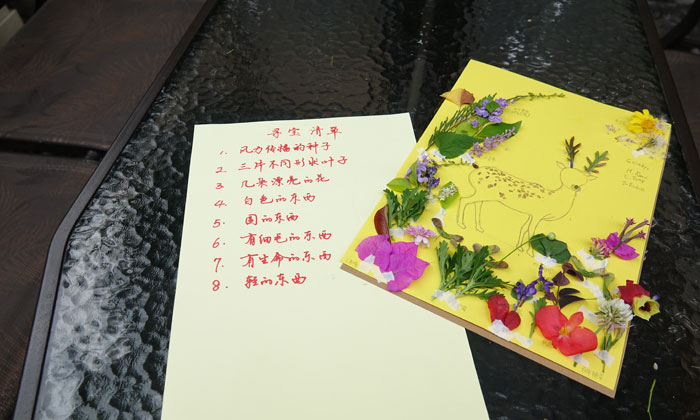 寻宝清单
1. 风力传播的种子
2. 三片不同形状叶子
3. 几朵漂亮的花
4. 白色的东西
5. 圆的东西
6. 有细毛的东西
7. 有生命的东西
8. 轻的东西